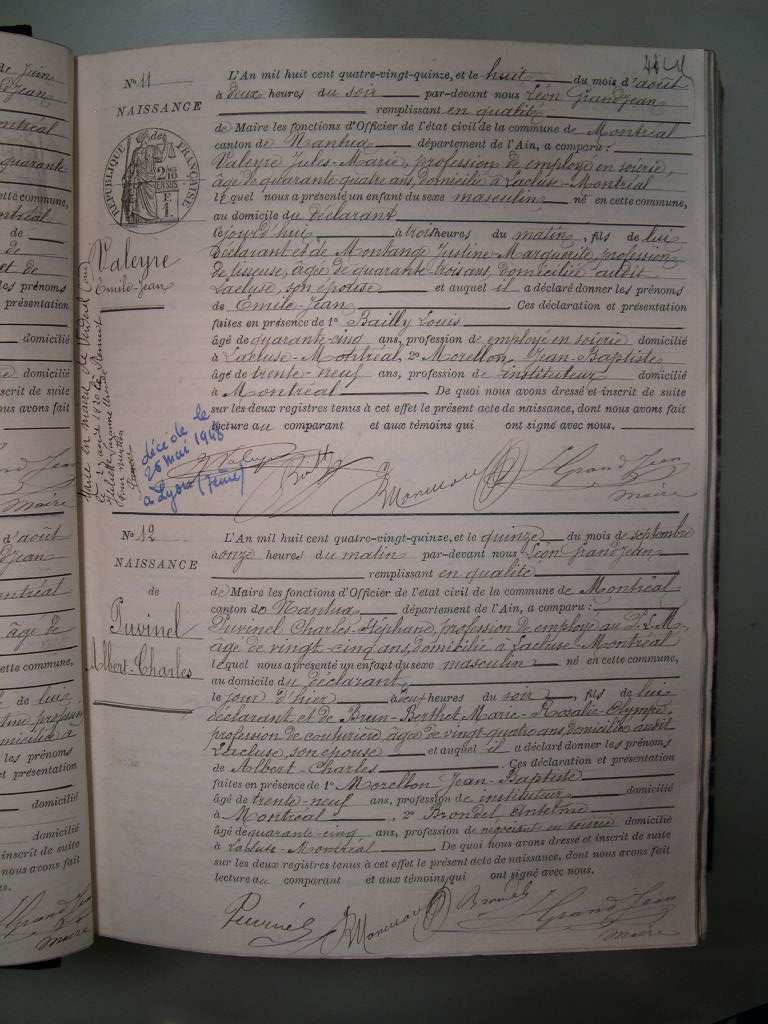 de Juin
Montréal
quarante
cette commune,
de
de
et de
les prénoms
présentation
domicilié
domicilié
inscrit de suite
nous avons fait
Grand Jean
Maire
d'août
Montréal
âgé de
cette commune,
de lui
domicilié à
les prénoms
et présentation
domicilié
domicilié
inscrit de suite
nous avons fait
Grand Jean
Maire
N° 11
NAISSANCE
RÉPUBLIQUE FRANÇAISE
Valeyre
Émile-Jean
décédé le
26 mai 1948
à Lyon (7ème)
L'An mil huit cent quatre-vingt-quinze, et le huit du mois d'août
à deux heures du soir par-devant nous Léon Grandjean
remplissant en qualité
de Maire les fonctions d'Officier de l'état civil de la commune de Montréal
canton de Nantua département de l'Ain, a comparu :
Valeyre Jules-Marie, profession de employé en soierie,
âgé de quarante quatre ans, domicilié à Lacluse-Montréal
lequel nous a présenté un enfant du sexe masculin né en cette commune,
au domicile du déclarant
le jour d'hui à trois heures du matin, fils de lui
déclarant et de Montange Justine Marguerite, profession
de tisseuse, âgée de quarante-trois ans, domiciliée audit
Lacluse, son épouse et auquel il a déclaré donner les prénoms
de Émile-Jean Ces déclaration et présentation
faites en présence de 1° Bailly Louis
âgé de quarante-cinq ans, profession de employé en soierie domicilié
à Lacluse-Montréal, 2° Morellon Jean-Baptiste
âgé de trente neuf ans, profession de instituteur domicilié
à Montréal De quoi nous avons dressé et inscrit de suite
sur les deux registres tenus à cet effet le présent acte de naissance, dont nous avons fait
lecture au comparant et aux témoins qui ont signé avec nous.
Morellon
Grand Jean
maire
N° 12
NAISSANCE
de
Puvinel
Albert-Charles
L'An mil huit cent quatre-vingt-quinze, et le quinze du mois de septembre
à onze heures du matin par-devant nous Léon Grandjean
remplissant en qualité
de Maire les fonctions d'Officier de l'état civil de la commune de Montréal
canton de Nantua département de l'Ain, a comparu :
Puvinel Charles-Stéphane, profession de employé au P.L.M.
âgé de vingt-cinq ans, domicilié à Lacluse-Montréal
lequel nous a présenté un enfant du sexe masculin né en cette commune,
au domicile du déclarant
le jour d'hier à sept heures du soir, fils de lui
déclarant et de Brun-Berthet Marie-Rosalie-Olympe
profession de couturière âgée de vingt-quatre ans, domiciliée audit
Lacluse, son épouse et auquel il a déclaré donner les prénoms
de Albert-Charles Ces déclaration et présentation
faites en présence de 1° Morellon Jean-Baptiste
âgé de trente-neuf ans, profession de instituteur domicilié
à Montréal, 2° Brondel Anselme
âgé de quarante-cinq ans, profession de négociant en soierie domicilié
à Lacluse-Montréal De quoi nous avons dressé et inscrit de suite
sur les deux registres tenus à cet effet le présent acte de naissance, dont nous avons fait
lecture au comparant et aux témoins qui ont signé avec nous.
Puvinel
Morellon
Brondel
Grand Jean
maire